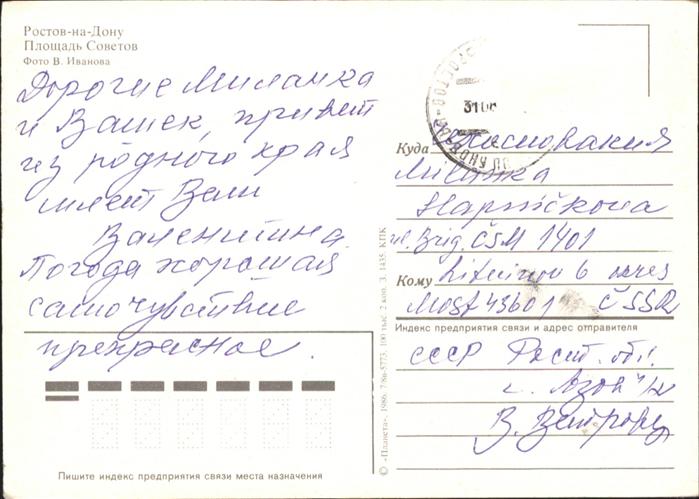 Ростов-на-Дону
Площадь Советов
Фото В. Иванова
Дорогие Миланка
и Вашек, привет
из родного края
шлет Вам
Валентина.
Погода хорошая
самочувствие
прекрасное.
Пишите индекс предприятия связи места назначения
© «Планета». 1986. 100 тыс. 2 коп. З. 1435. КПК
31
Куда Чехословакия
Миланка
ul. Brig. ČSM 1401
Кому Litvínov 6 okres
Most 43601 ČSSR
Индекс предприятия связи и адрес отправителя
СССР Рост. обл.
г. Азов
В.